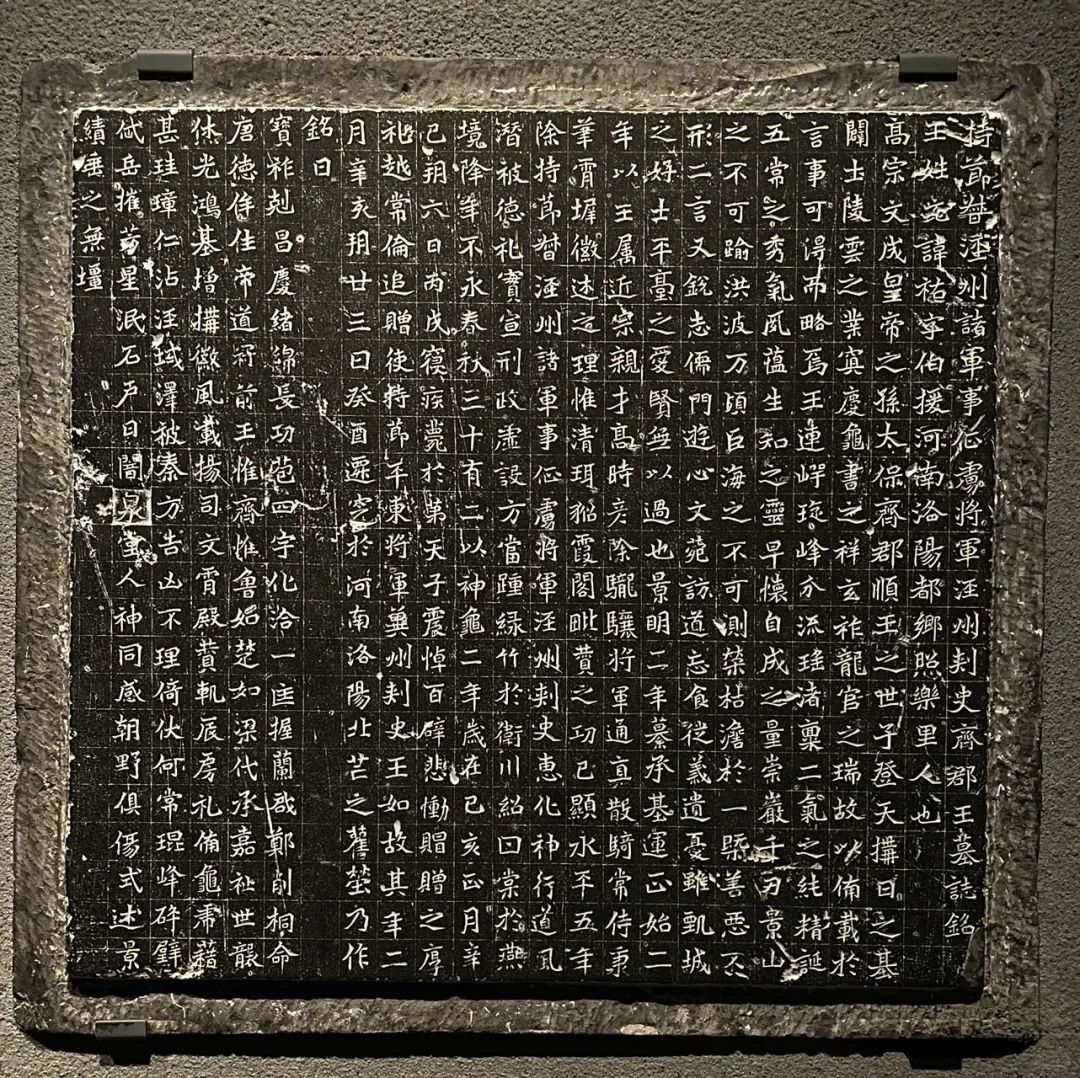 持節督涇州諸軍事征虜將軍涇州刺史齊郡王墓誌銘
王姓元諱祐字伯援河南洛陽都鄉照樂里人也
高宗文成皇帝之孫太保齊郡順王之世子登天構日之基
闢土陵雲之業寔慶龜書之祥玄祚龍官之瑞故以備載於
言事可得而略焉王連崿琁峰分流瑤渚稟二氣之純精誕
五常之秀氣夙蘊生知之靈早懷自成之量崇巖千刃景山
之不可踰洪波万頃巨海之不可測榮枯澹於一槩善惡丕
形二言又銳志儒門遊心文苑訪道忘食從義遺憂雖甄城
之好士平臺之愛賢無以過也景明二年纂承基運正始二
年以王属近宗親才高時彥除驍驤將軍通直散騎常侍秉
筆霄墀徽述之理惟清珥貂霞閣毗賛之功已顯永平五年
除持節督涇州諸軍事征虜將軍涇州刺史惠化神行道風
潛被德礼實宣刑政虛設方當踵綠竹於衛川紹曰棠於燕
境降年不永春秋三十有二以神龜二年歲在己亥正月辛
巳朔六日丙戌寢疾薨於第天子震悼百辟悲慟賵贈之厚
礼越常倫追贈使持節平東將軍冀州刺史王如故其年二
月辛亥朔廿三日癸酉遷窆於河南洛陽北芒之舊塋乃作
銘曰
寶祚剋昌慶緒綿長功苞四宇化洽一匡握蘭啟鄭削桐命
唐德侔往帝道冠前王惟齊惟魯如楚如梁代承嘉祉世襲
休光鴻基增構徽風載揚司文霄殿賛軌扆房礼備龜帛藉
甚珪璋仁沾涇域澤被秦方吉凶不理倚伏何常琨峰碎璧
岱岳摧芳星泯石戶日闇泉堂人神同感朝野俱傷式述景
績垂之無壃